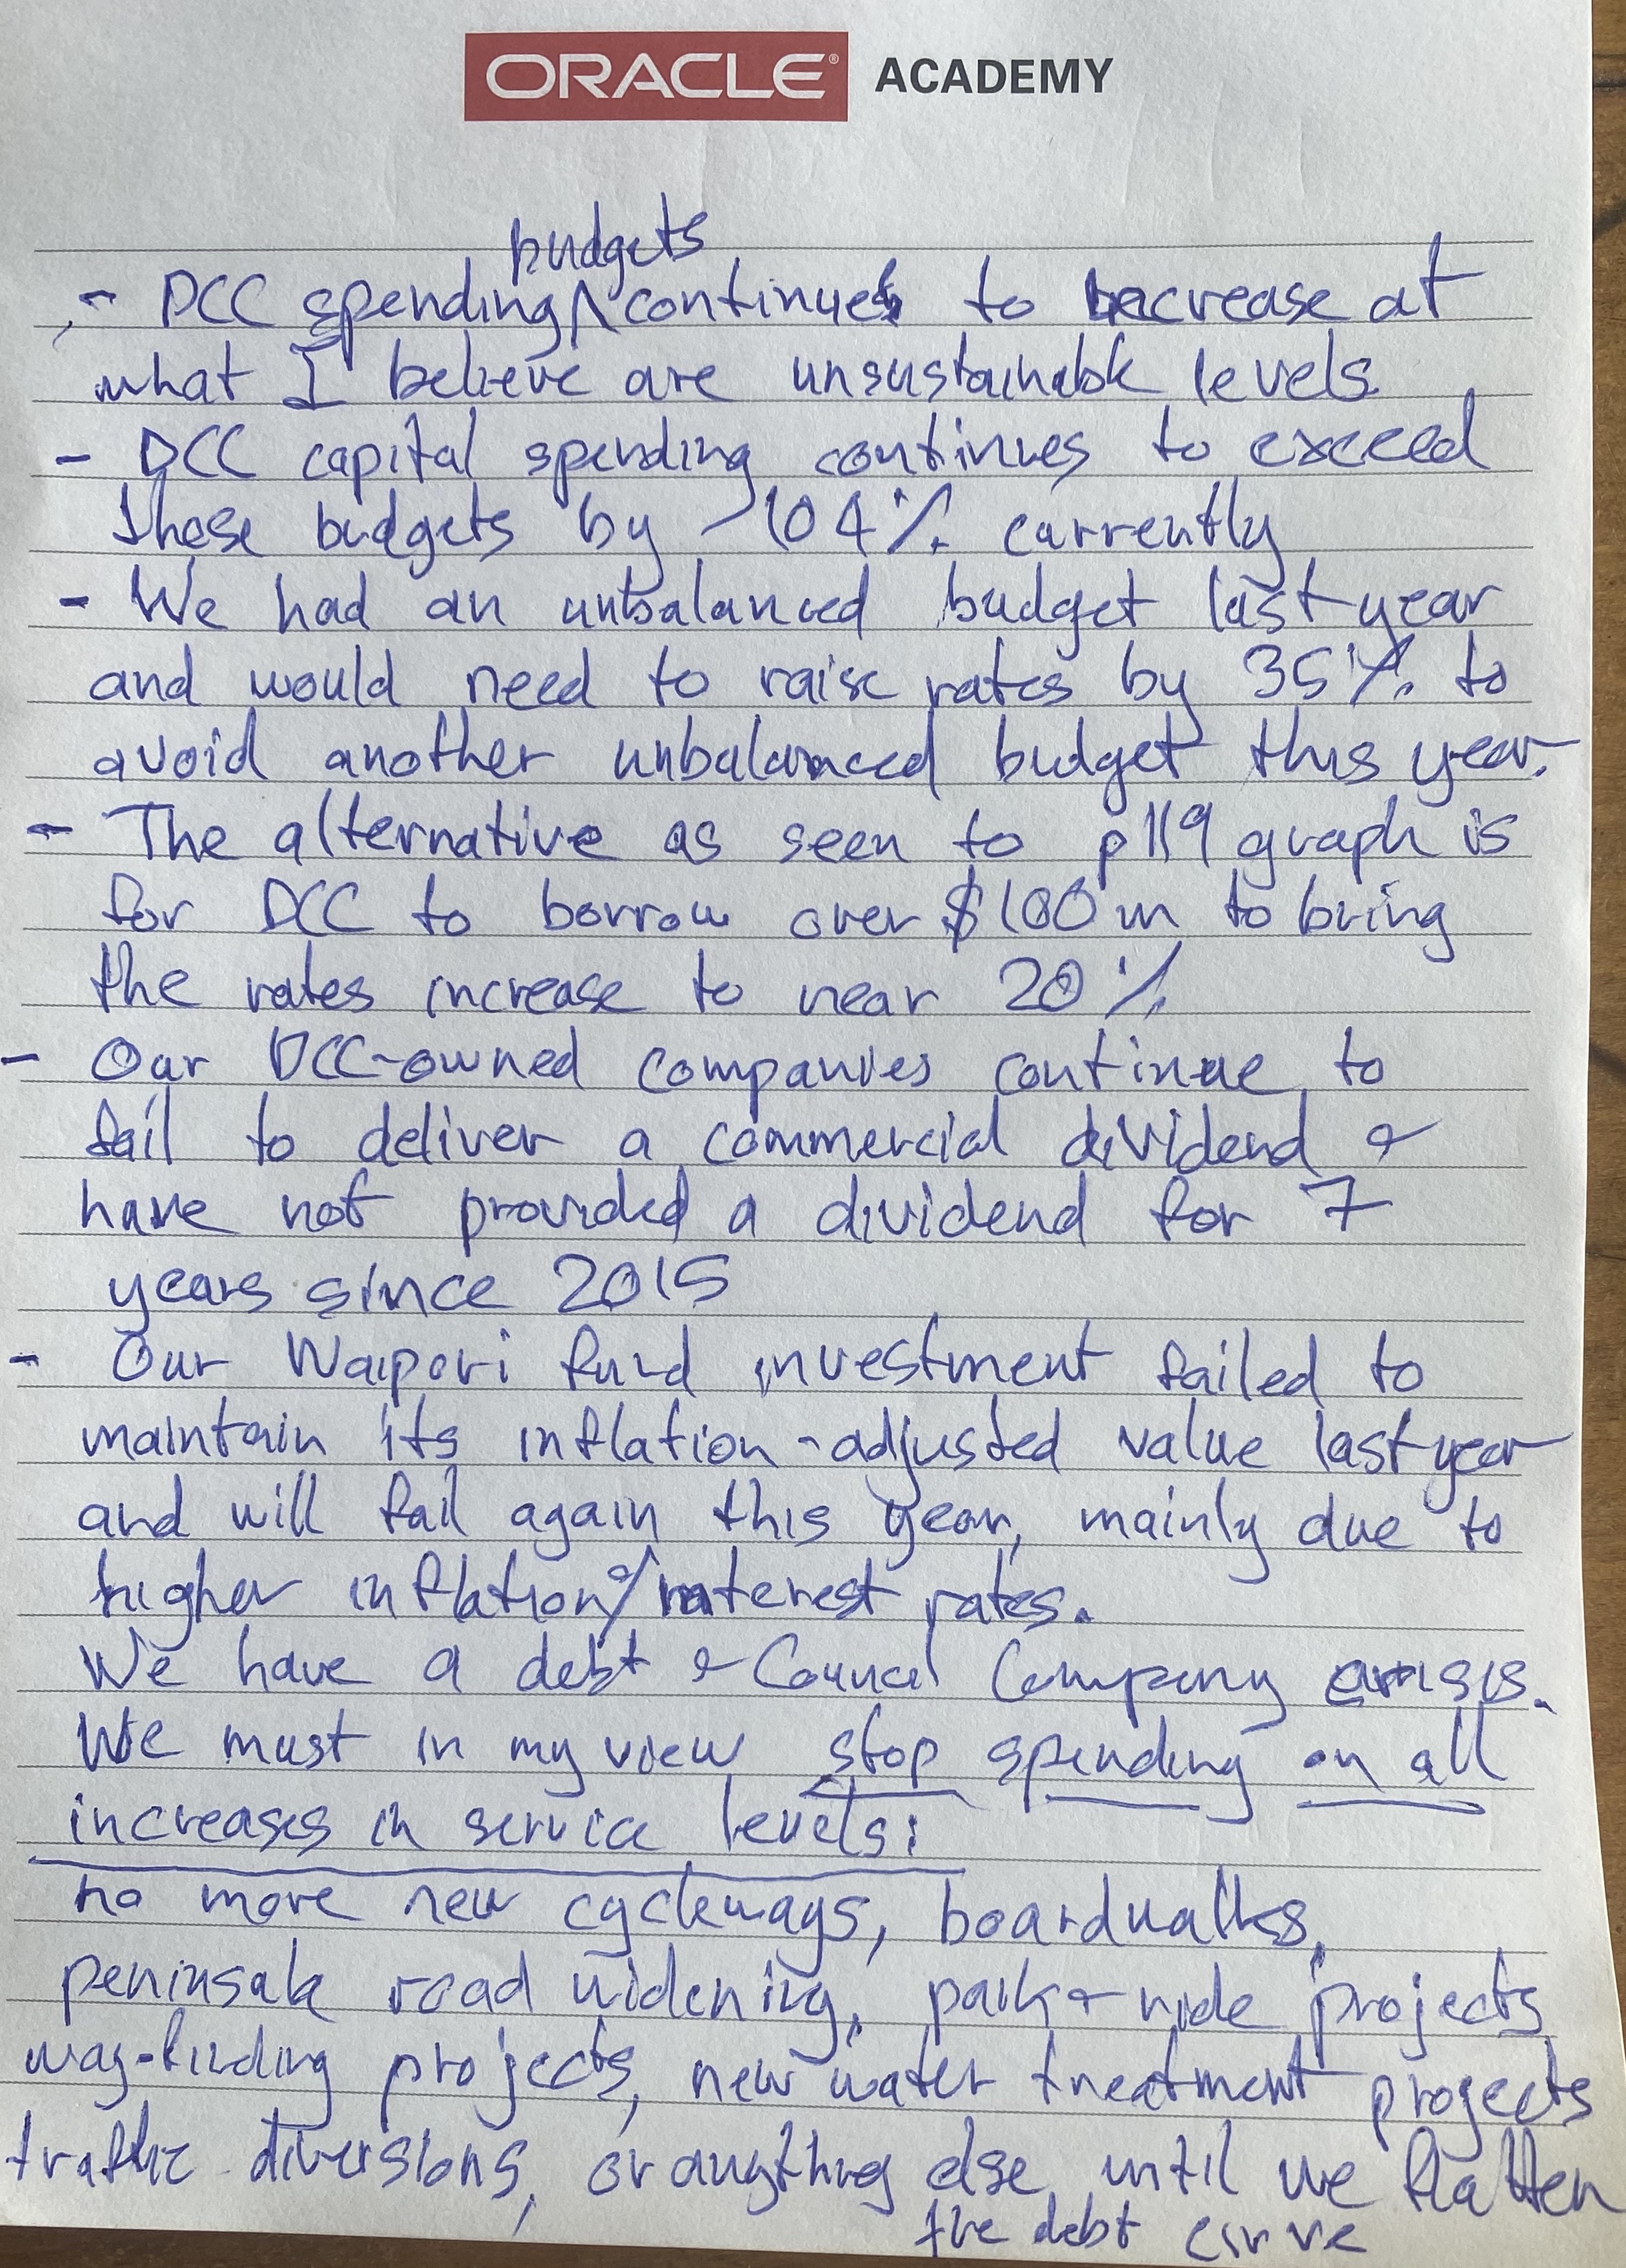 ORACLE® ACADEMY
budgets
- DCC spending ^ continue to increase at
what I believe are unsustainable levels
- DCC capital spending continues to exceed
these budgets by ~104% currently
- We had an unbalanced budget last year
and would need to raise rates by 35% to
avoid another unbalanced budget this year.
- The alternative as seen to p119 graph is
for DCC to borrow over $100m to bring
the rates increase to near 20%
- Our DCC-owned companies continue to
fail to deliver a commercial dividend &
have not provided a dividend for 7
years since 2015
- Our Waipori fund investment failed to
maintain its inflation-adjusted value last year
and will fail again this year, mainly due to
higher inflation & interest rates.
We have a debt & Council Company crisis.
We must in my view stop spending on all
increases in service levels:
no more new cycleways, boardwalks,
peninsula road widening, park & ride projects
way-finding projects, new water treatment projects
traffic diversions, or anything else until we flatten
the debt curve